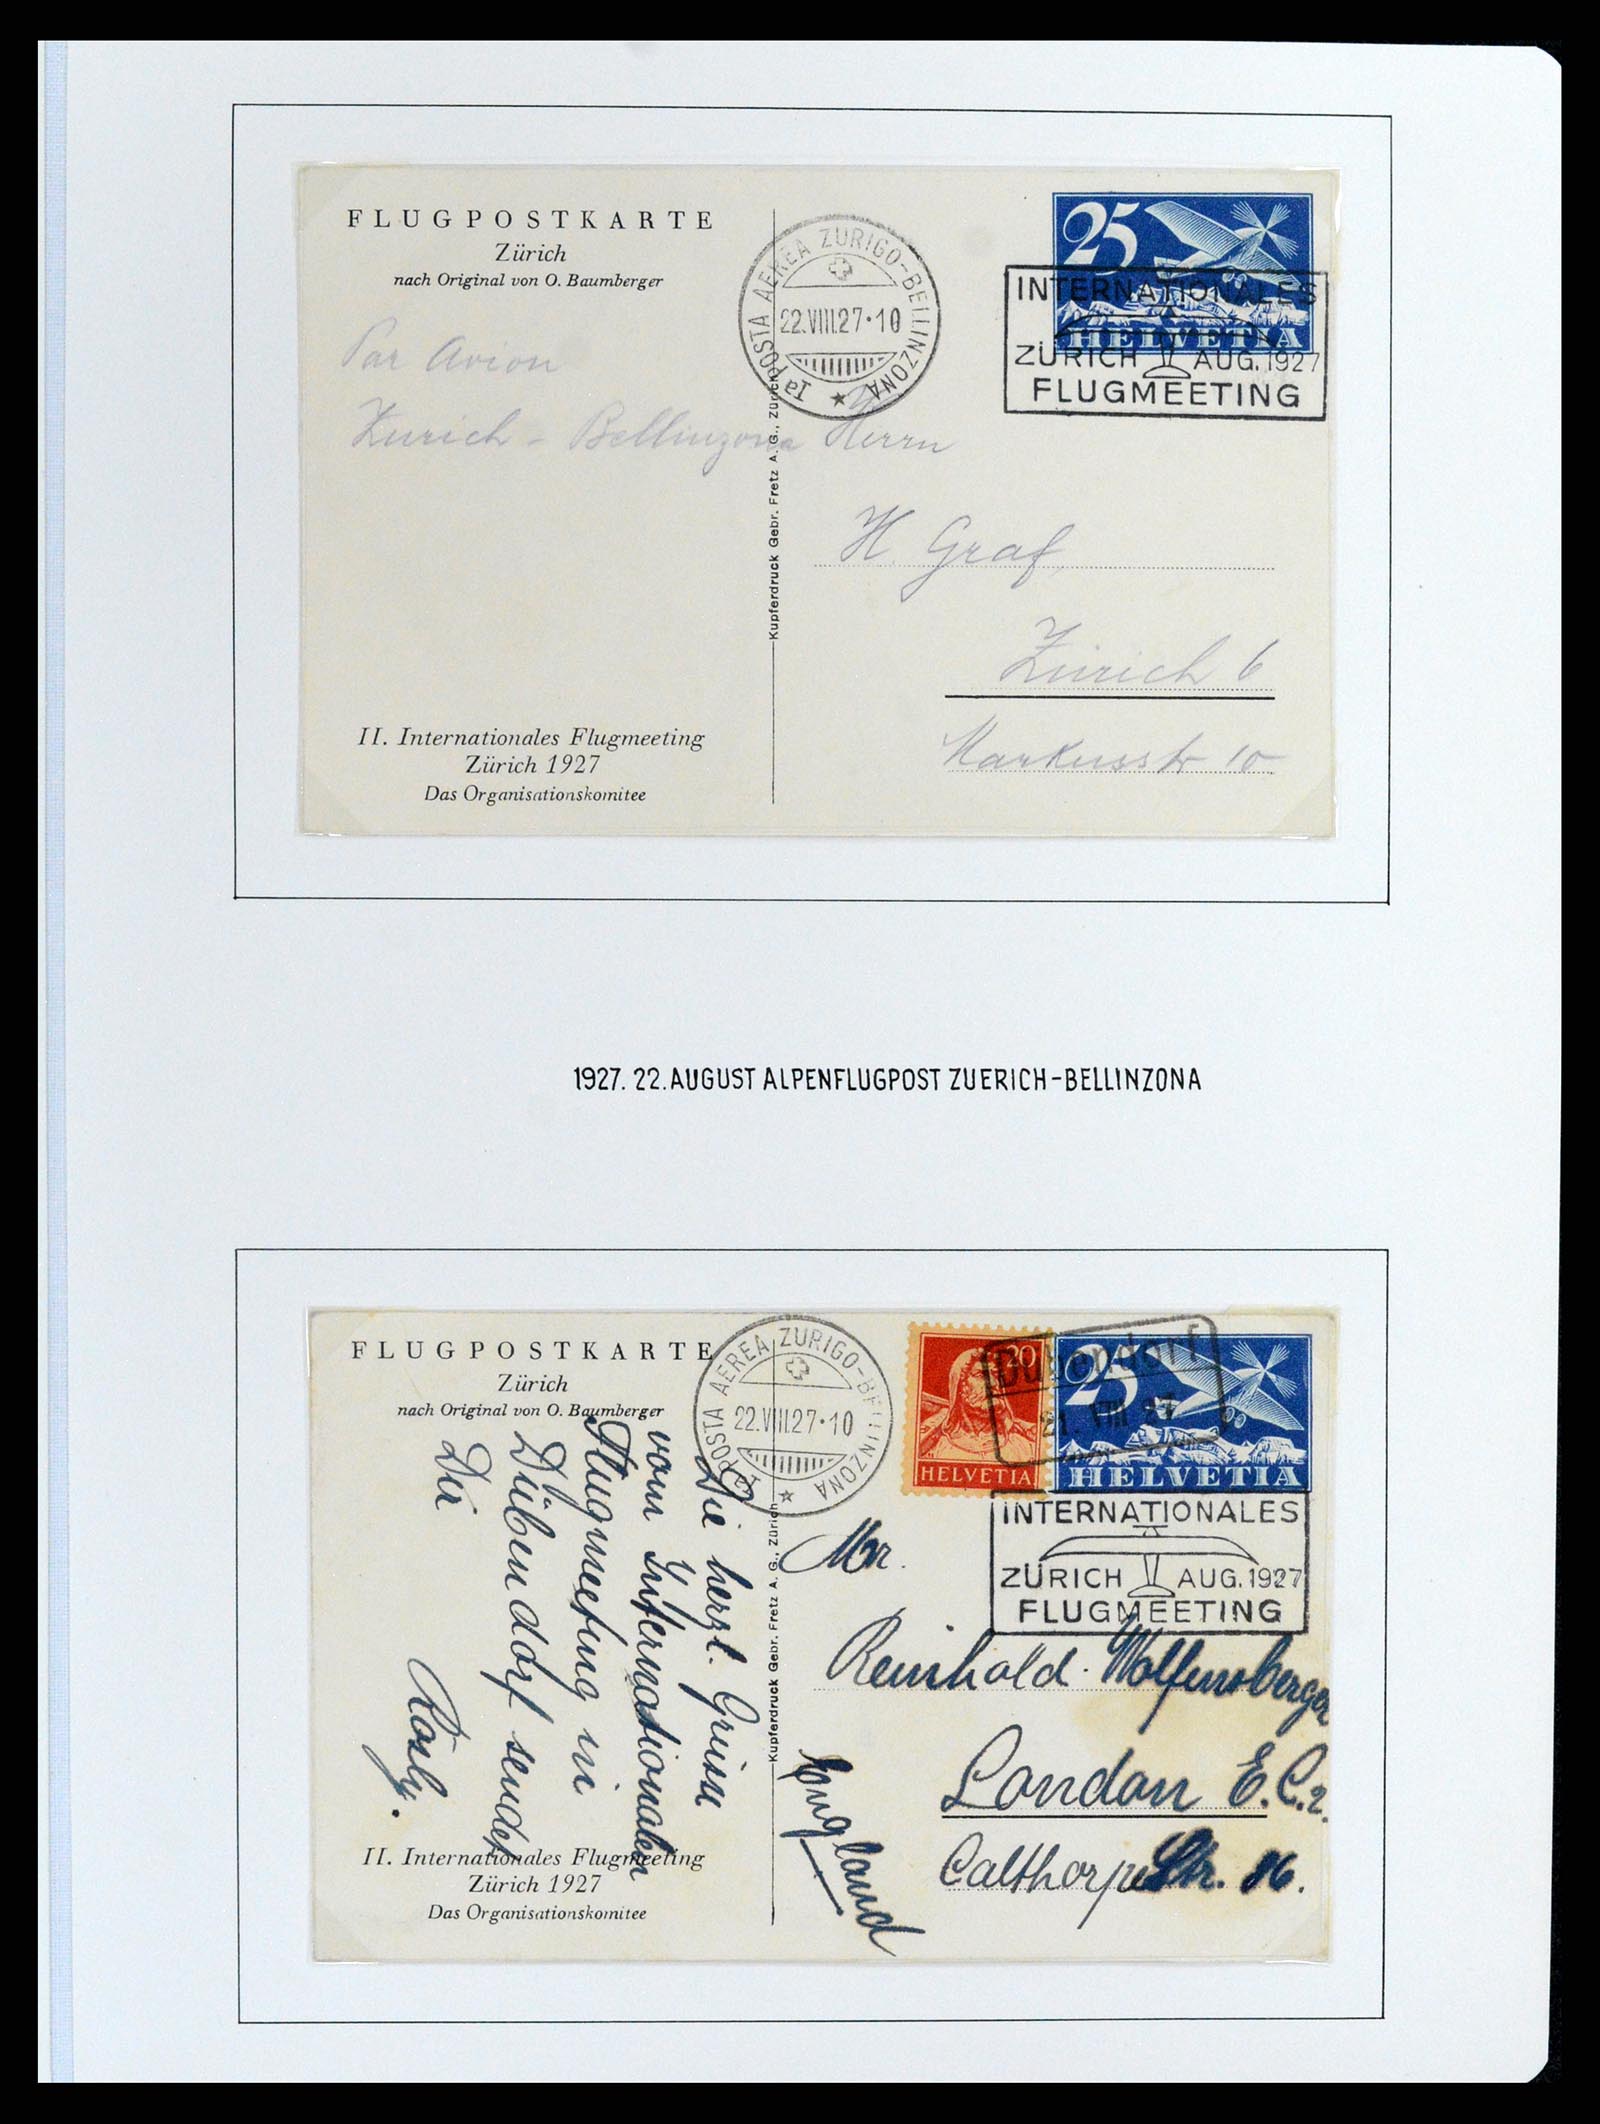 FLUGPOSTKARTE
Zürich
nach Original von O. Baumberger
Par Avion
Zurich - Bellinzona
II. Internationales Flugmeeting
Zürich 1927
Das Organisationskomitee
Kupferdruck Gebr. Fretz A. G., Zürich
Ia POSTA AEREA ZURIGO-BELLINZONA
22.VIII.27·10
25
HELVETIA
INTERNATIONALES
ZÜRICH AUG. 1927
FLUGMEETING
Herrn
H. Graf
Zürich 6
Markusstr 10
1927. 22. AUGUST ALPENFLUGPOST ZUERICH-BELLINZONA
FLUGPOSTKARTE
Zürich
nach Original von O. Baumberger
Die herzl. Grüsse
vom Internationalen
Flugmeeting in
Dübendorf sendet
Dir
Rösly.
II. Internationales Flugmeeting
Zürich 1927
Das Organisationskomitee
Kupferdruck Gebr. Fretz A. G., Zürich
Ia POSTA AEREA ZURIGO-BELLINZONA
22.VIII.27·10
20
HELVETIA
25
HELVETIA
Dübendorf
21. VIII 27
INTERNATIONALES
ZÜRICH AUG. 1927
FLUGMEETING
Mr.
Reinhold Wolfensberger
London E.C.2.
Calthorpe Str. 86.
England